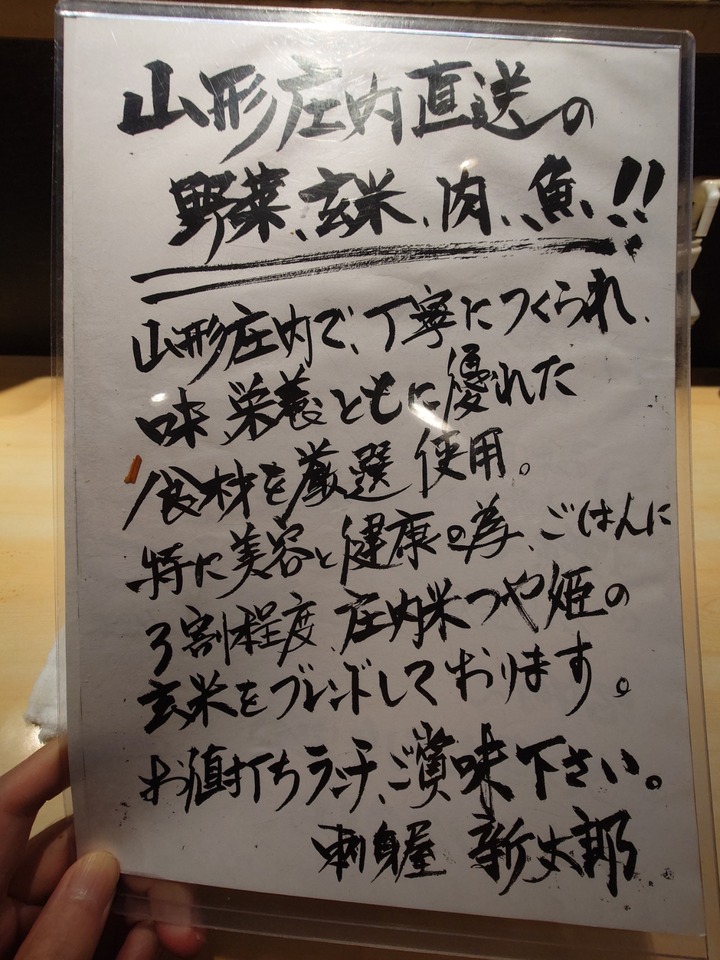 山形庄内直送の
野菜、玄米、肉、魚、!!
山形庄内で、丁寧につくられ、
味 栄養ともに優れた
食材を厳選使用。
特に美容と健康の為、ごはんに
3割程度、庄内米つや姫の
玄米をブレンドしております。
お値打ちランチ、ご賞味下さい。
刺身屋 新太郎